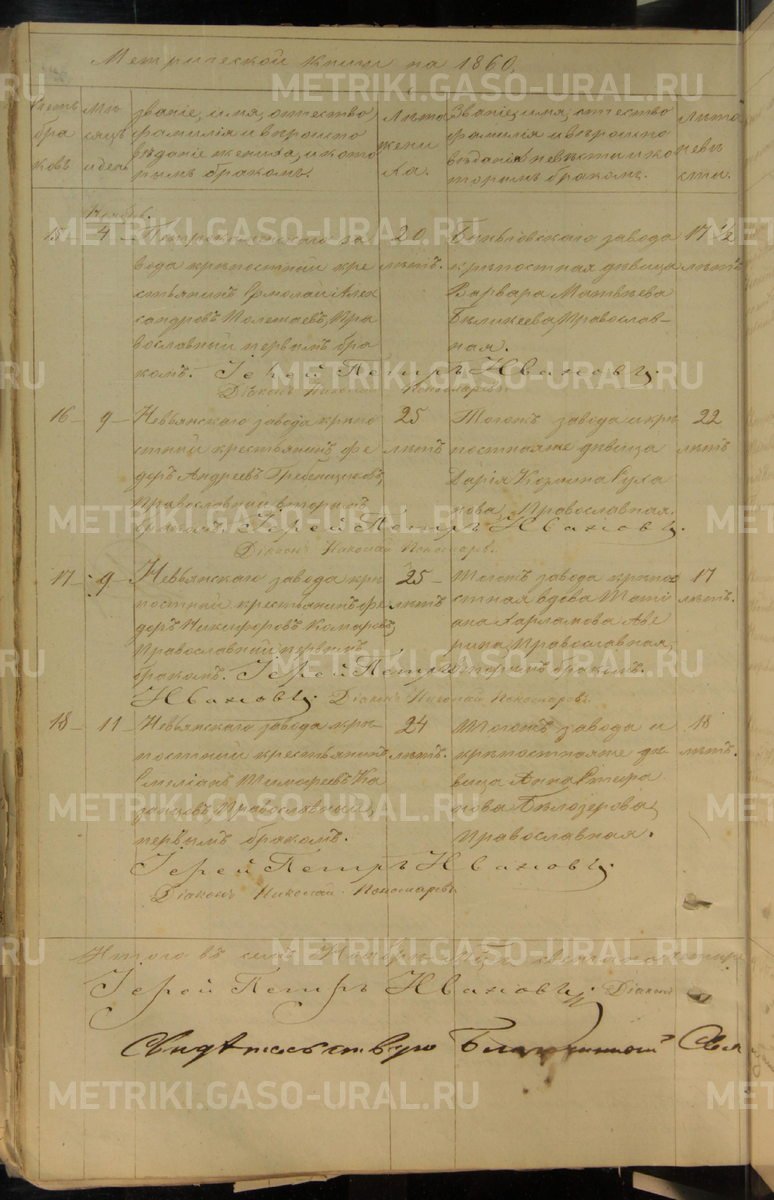 Метрической книги на 1860.
Счетъ браковъ
Мѣсяцъ и день
званіе, имя, отчество, фамилія и вѣроисповѣданіе жениха, и которымъ бракомъ.
Лѣта жениха.
Званіе, имя, отчество фамилія и вѣроисповѣданіе невѣсты и которымъ бракомъ.
Лѣта невѣсты.
Ноябрь.
15 4 завода крѣпостный крестьянинъ Ермолай Александровъ Полетаевъ, Православный первымъ бракомъ.
20 лѣтъ.
завода крѣпостная дѣвица Варвара Матвѣева Православная.
17 1/2 лѣтъ
Іерей Петръ Ивановъ
Діаконъ Николай Пономаревъ.
16 9 Невьянскаго завода крѣпостный крестьянинъ Федоръ Андреевъ Гребенщиковъ, Православный вторымъ бракомъ.
25 лѣтъ
Тогожъ завода и крѣпостнаяже дѣвица Дарія Козмина Православная.
22 лѣтъ
Іерей Петръ Ивановъ.
Діаконъ Николай Пономаревъ.
17 9 Невьянскаго завода крѣпостный крестьянинъ Федоръ Никифоровъ Комаровъ, Православный первымъ бракомъ.
25 лѣтъ
Тогожъ завода крѣпостная вдова Татіана Харламова Аверина, Православная, вторымъ бракомъ.
17 лѣтъ.
Іерей Петръ Ивановъ.
Діаконъ Николай Пономаревъ.
18 11 Невьянскаго завода крѣпостный крестьянинъ Емеліанъ Тимофеевъ Казанцовъ, Православный, первымъ бракомъ.
24 лѣтъ.
Тогожъ завода и крѣпостнаяже дѣвица Анна Бѣлозерова, Православная.
18 лѣтъ.
Іерей Петръ Ивановъ.
Діаконъ Николай Пономаревъ
Итого въ семъ Ноябрѣ
Іерей Петръ Ивановъ. Діаконъ
Свидѣтельствую Благочинный
METRIKI.GASO-URAL.RU